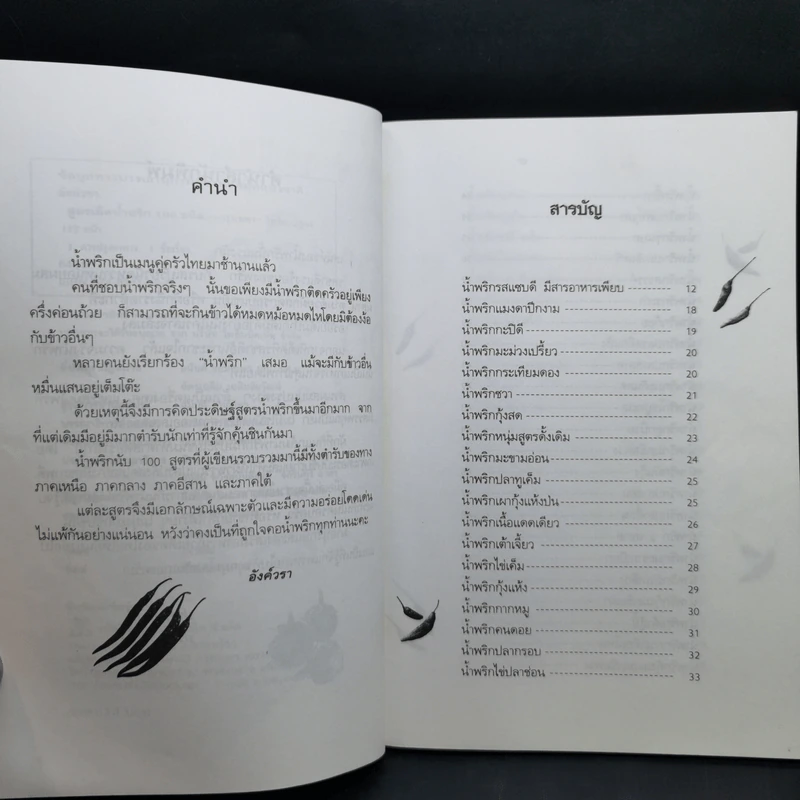 คำนำ
น้ำพริกเป็นเมนูคู่ครัวไทยมาช้านานแล้ว
คนที่ชอบน้ำพริกจริงๆ นั้นขอเพียงมีน้ำพริกติดครัวอยู่เพียง
ครึ่งค่อนถ้วย ก็สามารถที่จะกินข้าวได้หมดหม้อหมดไหโดยมิต้องง้อ
กับข้าวอื่นๆ
หลายคนยังเรียกร้อง "น้ำพริก" เสมอ แม้จะมีกับข้าวอื่น
หมื่นแสนอยู่เต็มโต๊ะ
ด้วยเหตุนี้จึงมีการคิดประดิษฐ์สูตรน้ำพริกขึ้นมาอีกมาก จาก
ที่แต่เดิมมีอยู่มิมากตำรับนักเท่าที่รู้จักคุ้นชินกันมา
น้ำพริกนับ 100 สูตรที่ผู้เขียนรวบรวมมานี้มีทั้งตำรับของทาง
ภาคเหนือ ภาคกลาง ภาคอีสาน และภาคใต้
แต่ละสูตรจึงมีเอกลักษณ์เฉพาะตัวและมีความอร่อยโดดเด่น
ไม่แพ้กันอย่างแน่นอน หวังว่าคงเป็นที่ถูกใจคอน้ำพริกทุกท่านนะคะ
อังค์วรา
สารบัญ
น้ำพริกรสแซบดี มีสารอาหารเพียบ 12
น้ำพริกแมงดาปีกงาม 18
น้ำพริกกะปิดี 19
น้ำพริกมะม่วงเปรี้ยว 20
น้ำพริกกระเทียมดอง 20
น้ำพริกชวา 21
น้ำพริกกุ้งสด 22
น้ำพริกหนุ่มสูตรดั้งเดิม 23
น้ำพริกมะขามอ่อน 24
น้ำพริกปลาทูเค็ม 25
น้ำพริกเผากุ้งแห้งป่น 25
น้ำพริกเนื้อแดดเดียว 26
น้ำพริกเต้าเจี้ยว 27
น้ำพริกไข่เค็ม 28
น้ำพริกกุ้งแห้ง 29
น้ำพริกกากหมู 30
น้ำพริกคนดอย 31
น้ำพริกปลากรอบ 32
น้ำพริกไข่ปลาช่อน 33